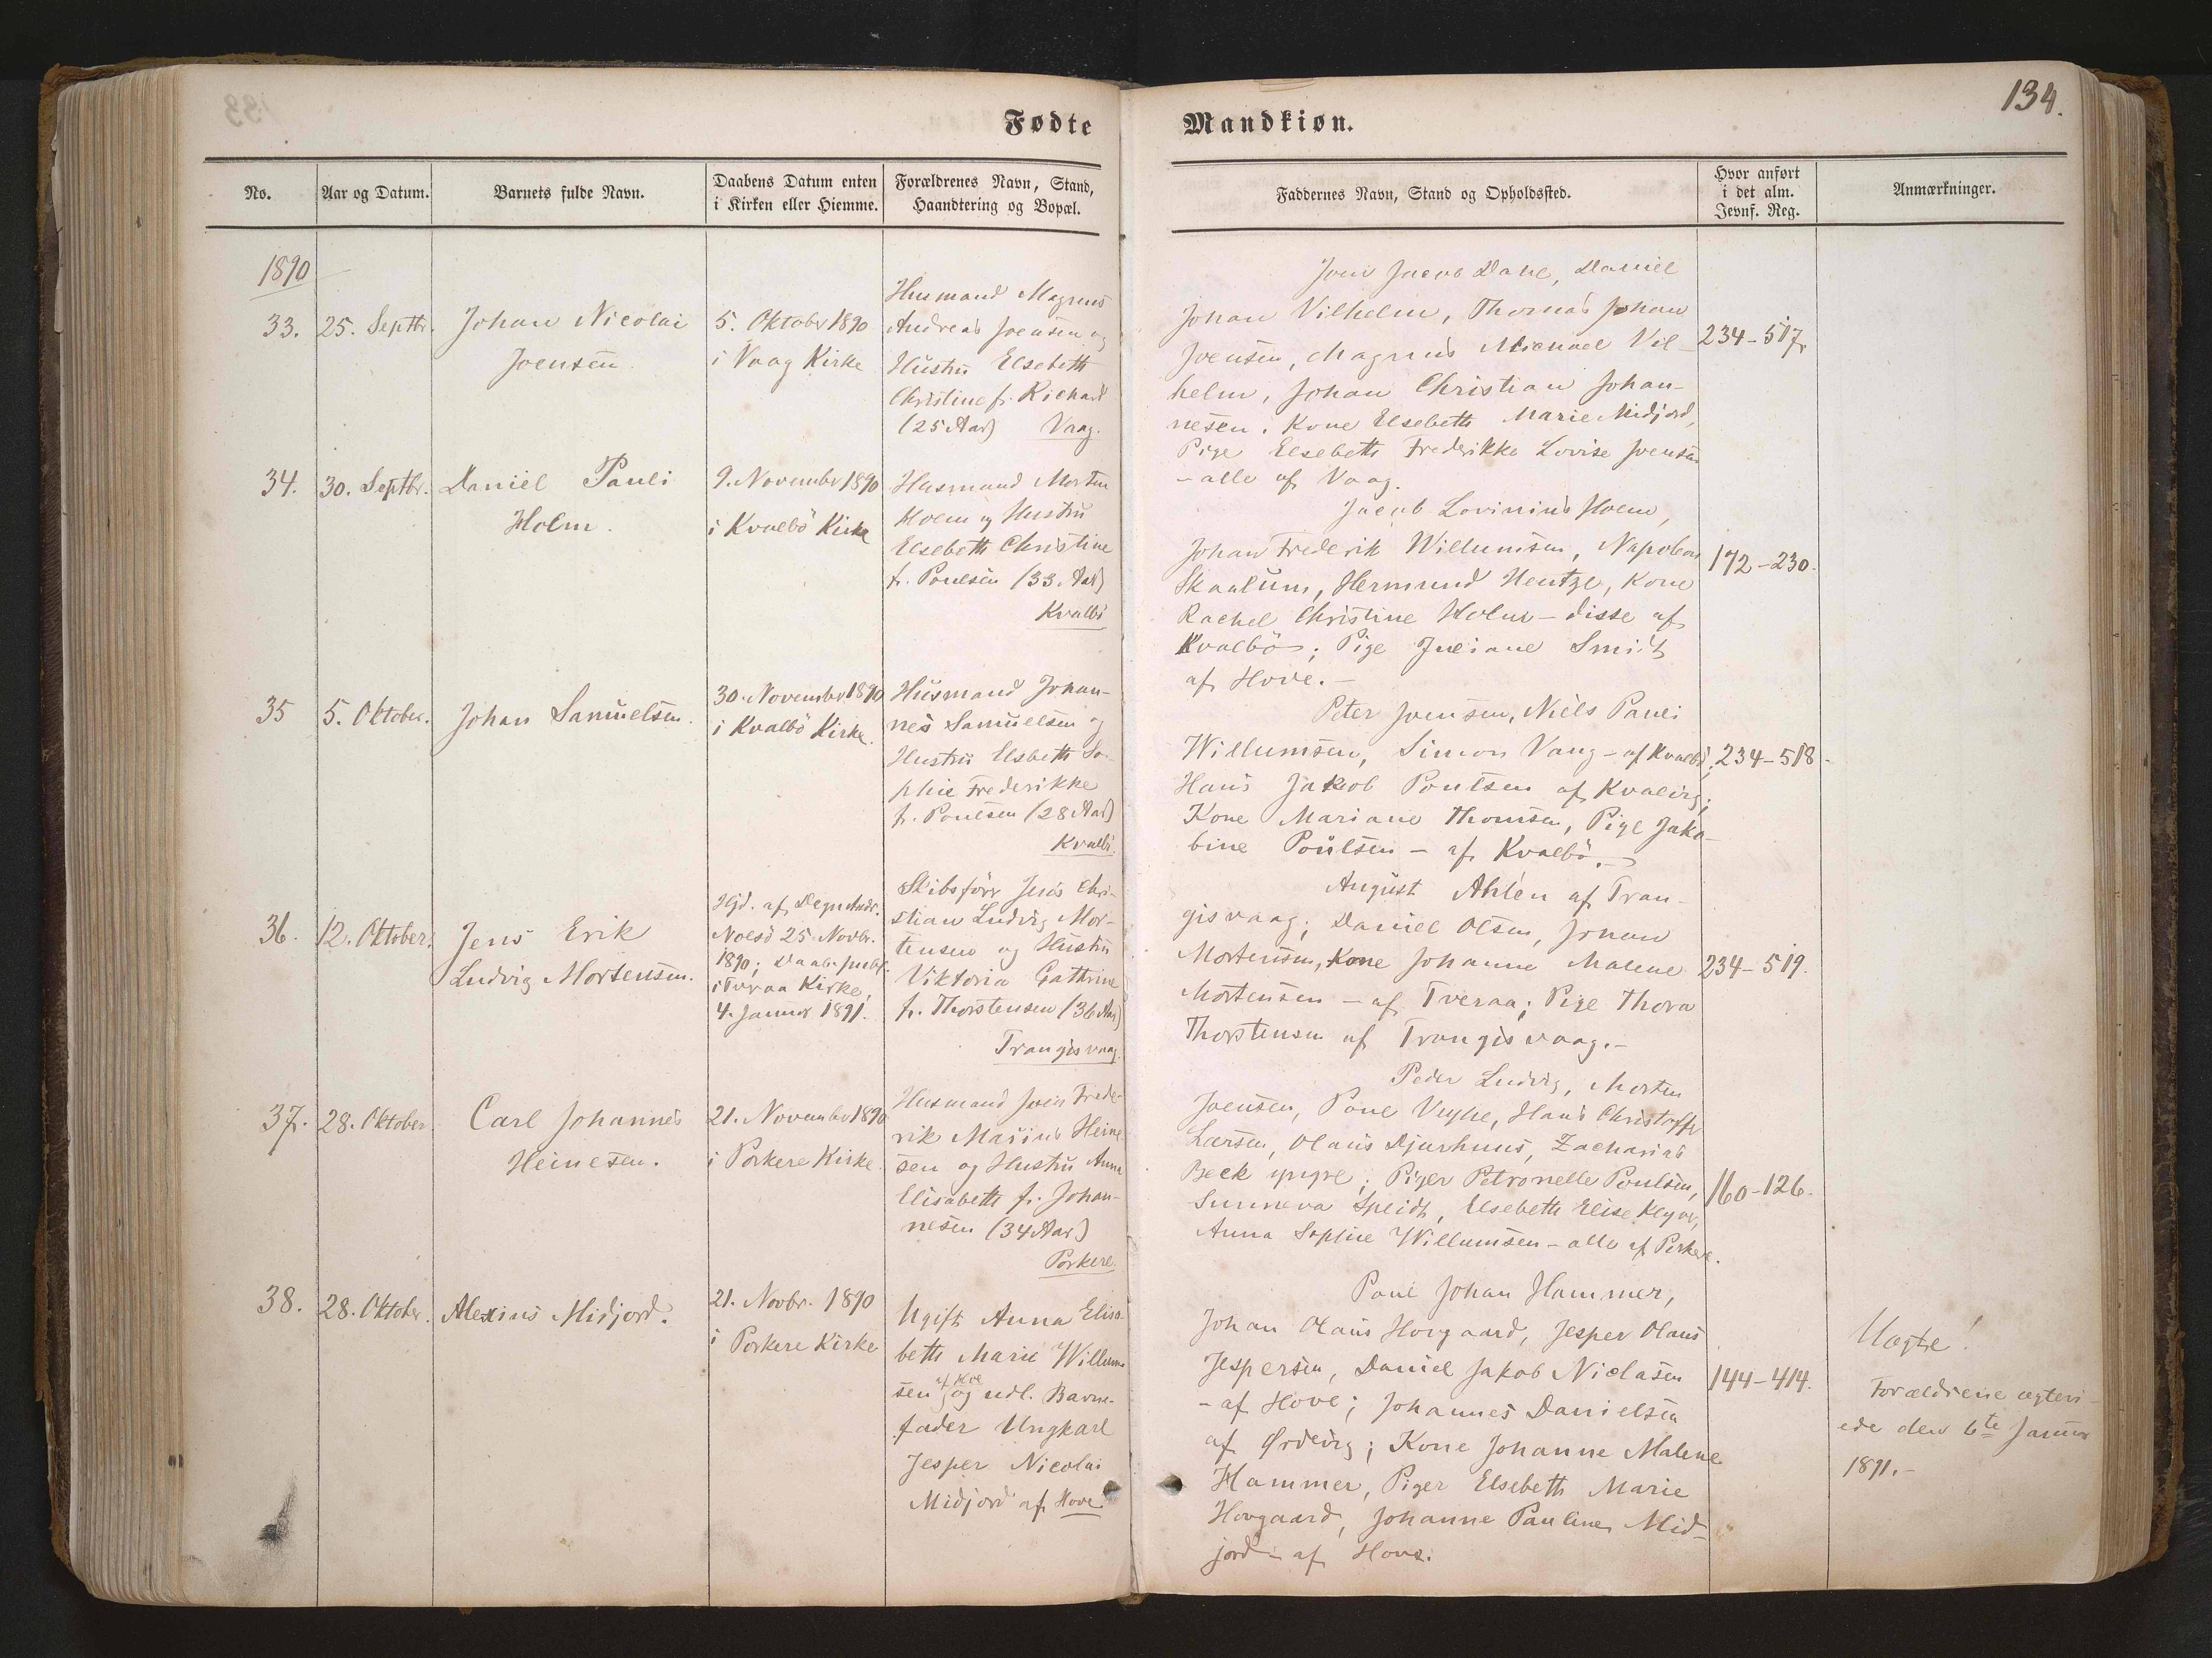 134.
Fødte
Mandkiøn.
No.
Aar og Datum.
Barnets fulde Navn.
Daabens Datum enten
i Kirken eller Hiemme.
Forældrenes Navn, Stand,
Haandtering og Bopæl.
Faddernes Navn, Stand og Opholdssted.
Hvor anført
i det alm.
Jevnf. Reg.
Anmærkninger.
1890
33.
25. Septbr.
Johan Nicolai
Joensen
5. Oktobr 1890
i Vaag Kirke
Husmand Magnus
Andreas Joensen og
Hustru Elsebeth
Christine f. Richard
(25 Aar) Vaag.
Joen Jacob Dahl, Daniel
Johan Vilhelm, Thomas Johan
Joensen, Magnus Michael Vil-
helm, Johan Christian Johan-
nesen. Kone Elsebeth Marie Midjord,
Pige Elsebeth Frederikke Lovise Joensen
- alle af Vaag.
234-517.
34.
30. Septbr.
Daniel Pauli
Holm.
9. Novembr 1890
i Kvalbö Kirke
Husmand Morten
Holm og Hustru
Elsebeth Christine
f. Poulsen (33 Aar)
Kvalbö
Jacob Lovinius Holm,
Johan Frederik Willumsen, Napoleon
Skaalum, Hermund Hentze, Kone
Rachel Christine Holm - disse af
Kvalbö; Pige Juliane Smidt
af Hove.-
192-230.
35
5. Oktober.
Johan Samuelsen.
30. Novembr 1890
i Kvalbö Kirke.
Husmand Johan-
nes Samuelsen og
Hustru Elsbeth So-
phie Frederikke
f. Poulsen (28 Aar)
Kvalbö.
Peter Joensen, Niels Pauli
Willumsen, Simon Vang - af Kvalbö;
Hans Jakob Poulsen af Kvalvig;
Kone Mariane Thomsen, Pige Jako-
bine Poulsen - af Kvalbö.-
234-518.
36.
12. Oktober.
Jens Erik
Ludvig Mortensen.
Hjd. af Degn Andr.
Nolsö 25 Novbr.
1890; Daab. publ.
i Tveraa Kirke,
4. Januar 1891.
Skibsförer Jens Chri-
stian Ludvig Mor-
tensen og Hustru
Viktoria Cathrine
f. Thorstensen (36 Aar)
Trangisvaag.
August Ahlén af Tran-
gisvaag; Daniel Olsen, Johan
Mortensen, Kone Johanne Malene
Mortensen - af Tveraa; Pige Thora
Thorstensen af Trangisvaag.-
234-519.
37.
28. Oktober
Carl Johannes
Heinesen.
21. Novembr 1890
i Porkere Kirke.
Husmand Joen Frede-
rik Marius Heine-
sen og Hustru Anna
Elisabeth f. Johan-
nesen (34 Aar)
Porkere.
Peder Ludvig, Morten
Joensen, Poul Hans Christoffer
Larsen, Olaus Djurhuus, Zacharias
Beck; Piger Petronelle Poulsen,
Sunneva Elsebeth Elise
Anna Sophie Willumsen - alle af Porkere.
160-126.
38.
28. Oktober.
Alexius Midjord.
21. Novbr. 1890
i Porkere Kirke
Ugift Anna Elisa-
beth Marie Willum-
sen af Hove og udl. Barne-
fader Ungkarl
Jesper Nicolai
Midjord af Hove.
Poul Johan Hammer,
Johan Olaus Hovgaard, Jesper Olaus
Jespersen, Daniel Jakob Niclasen
- af Hove; Johannes Danielsen
af Ördevig; Kone Johanne Malene
Hammer, Piger Elsebeth Marie
Hovgaard, Johanne Pauline Mid-
jord - af Hove.
144-414.
Uægte!
Forældrene ægtevi-
ede den 6te Januar
1891.-